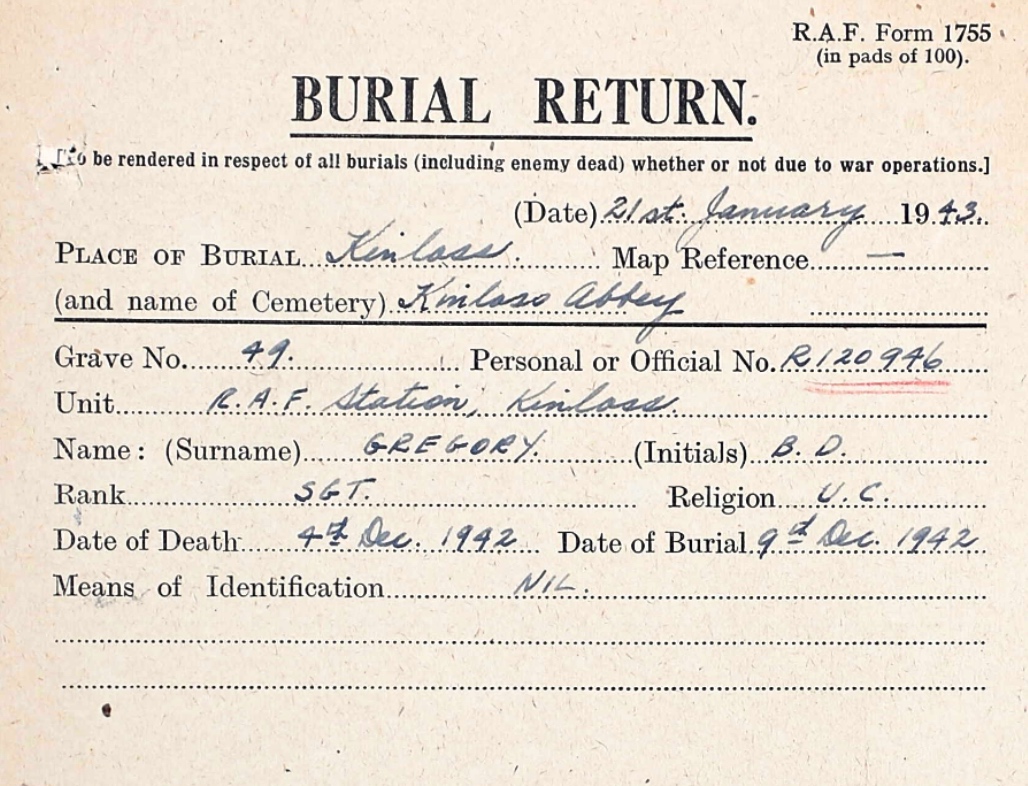 R.A.F. Form 1755
(in pads of 100).
BURIAL RETURN.
[To be rendered in respect of all burials (including enemy dead) whether or not due to war operations.]
(Date) 21st. January 1943.
PLACE OF BURIAL Kinloss. Map Reference —
(and name of Cemetery) Kinloss Abbey
Grave No. 49. Personal or Official No. R120946
Unit R.A.F. Station, Kinloss.
Name: (Surname) GREGORY. (Initials) B. D.
Rank SGT. Religion U.C.
Date of Death 4th Dec. 1942 Date of Burial 9th Dec. 1942
Means of Identification NIL.